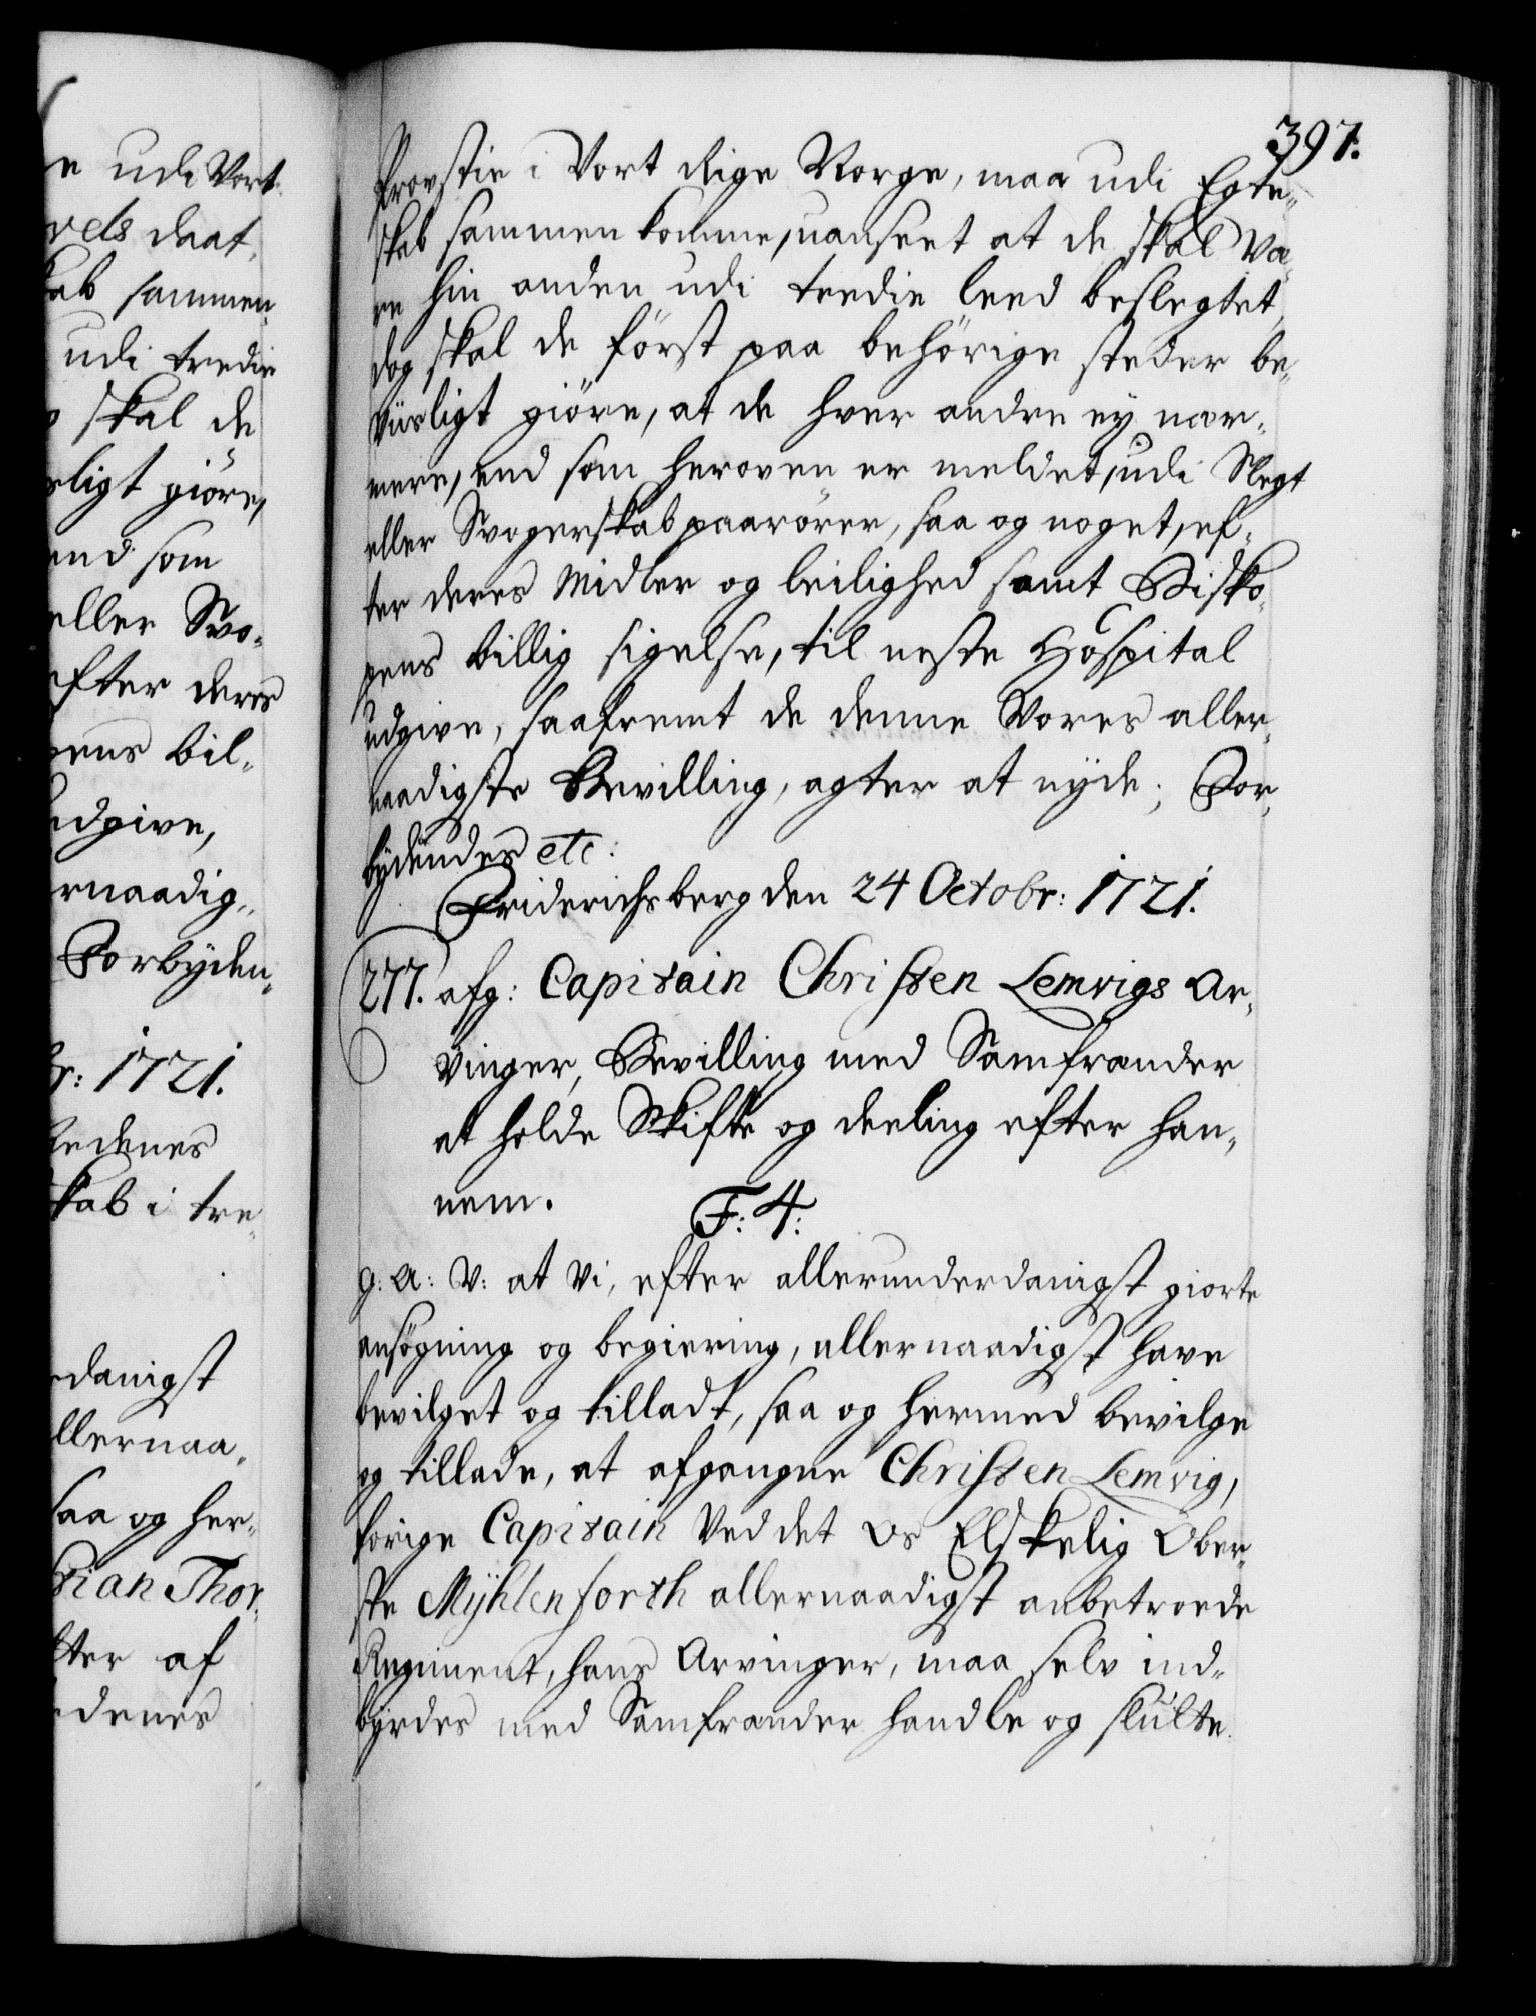 e udi Vort
vels daat,
kab sammen,
udi tredie
skal de
ligt giöre,
end som
eller Svo,
efter deres
pens bil,
udgive,
ernaadig,,
Forbyden,,
br: 1721.
Ledenes
skab i tre,
danigst
llernaa,
saa og her,
tian Thor,
ter af
denes
397.
Provstie i Vort Rige Norge, maa udi Egte,,
skab sammen komme, uanseet at de skal Væ,
re hin anden udi tredie leed beslegtet,
dog skal de först paa behörige steder be,
viisligt giöre, at de hver andre ey nær,
mere, end som heroven er meldet, udi Slegt
eller Svogerskab paarörer, saa og noget, ef,
ter deres Midler og leilighed samt Bisko,
pens billig sigelse, til neste Hospital
udgive, saafremt de denne Vores aller,
naadigste Bevilling, agter at nyde; For,
bydendes etc:
Friderichsberg den 24 Octobr: 1721.
277. afg: Capitain Christen Lemvigs Ar,
vinger, Bevilling med Samfrænder
at holde Skifte og deeling efter han,
nem.
F: 4:
G: A: V: at Vi, efter allerunderdanigst giorte
ansögning og begiering, allernaadigst have
bevilget og tilladt, saa og hermed bevilge
og tillade, at afgangne Christen Lemvig,
forige Capitain Ved det Os Elskelig Ober,
ste Mÿhlenforth allernaadigst anbetroede
Regiment, hans Arvinger, maa selv ind,
byrdes med Samfrænder handle og slutte